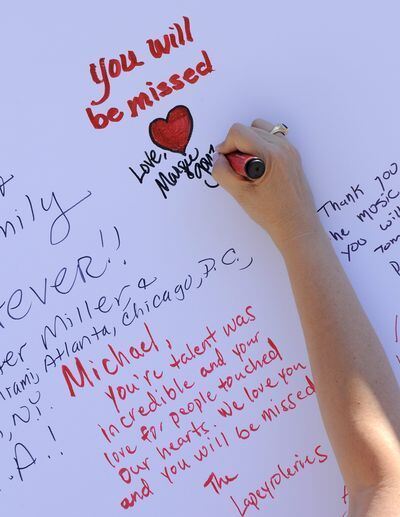 You will
be missed
Love,
Margie
Thank you
he music
you will
mily
ever!!
er Miller &
iami, Atlanta, Chicago, P.C.,
, NY.
.A.!
Michael,
You're talent was
incredible and your
love for people touched
our hearts. We love you
and you will be missed
The
Lapeyroleries